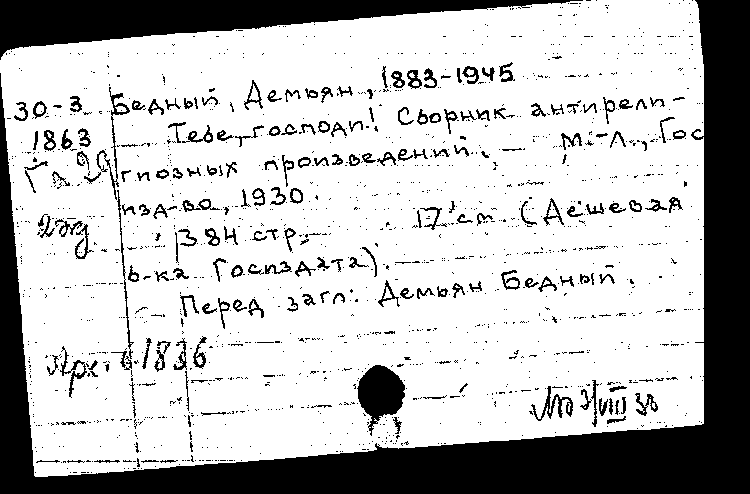 30-3 Бедный, Демьян, 1883-1945
1863 Тебе, господи! Сборник антирели-
гиозных произведений. — М.-Л., Гос
изд-во, 1930.
2 экз
384 стр. 17 см (Дешевая
б-ка Госиздата).
Перед загл: Демьян Бедный.
Арх. 61836
VIII 30